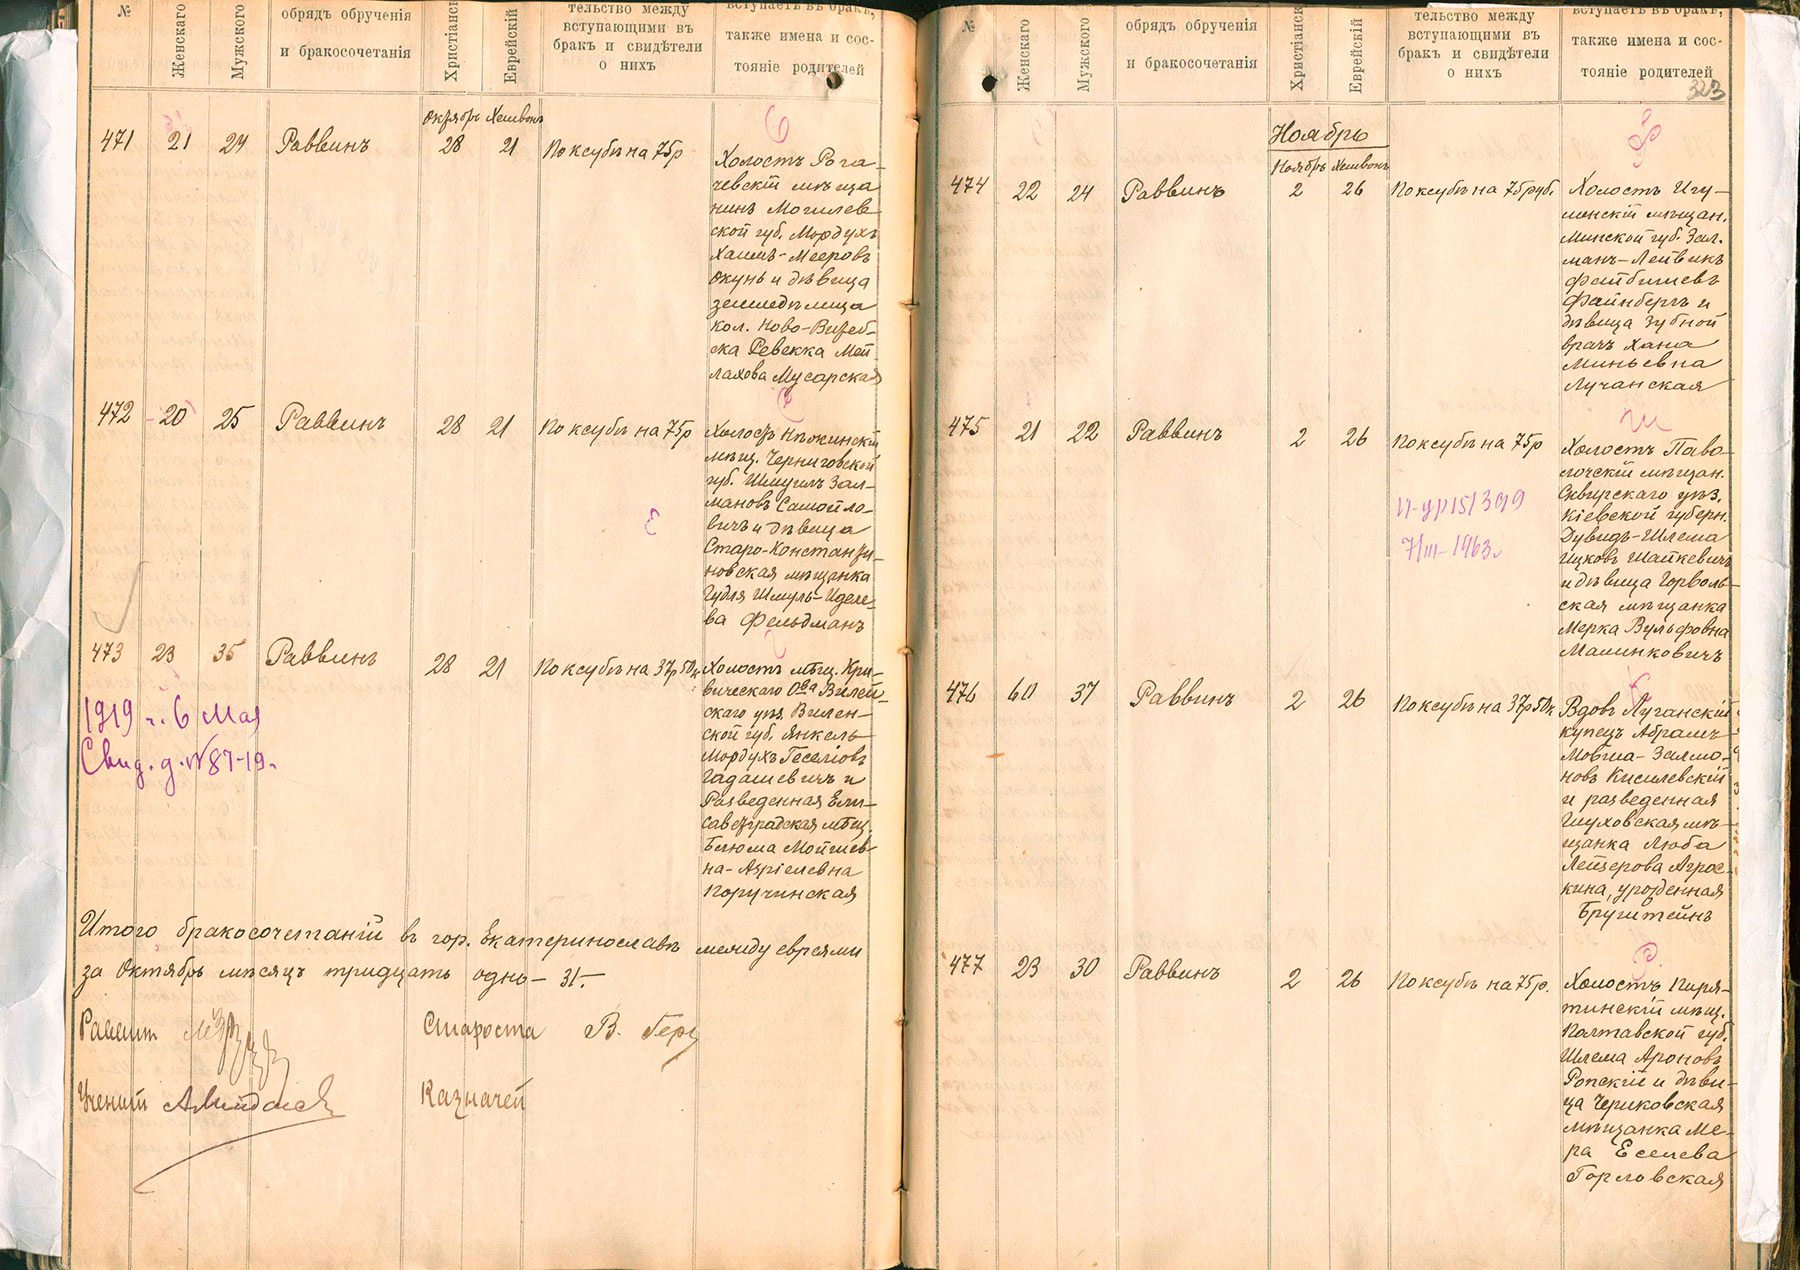 №
Женскаго
Мужского
обрядъ обрученія
и бракосочетанія
Христіанск
Еврейскій
тельство между
вступающими въ
бракъ и свидѣтели
о нихъ
вступаетъ въ бракъ,
также имена и сос-
тояніе родителей
Октябрь Хешвонъ
471 21 24 Раввинъ 28 21 По ксубѣ на 75 р
Холостъ Рога-
чевскій мѣща
нинъ Могилев
ской губ. Мордухъ
Хаимъ-Мееровъ
Окунь и дѣвица
земледѣлица
кол. Ново-Витеб-
ска Ревекка Мей
лахова Мусарская
472 20 25 Раввинъ 28 21 По ксубѣ на 75 р
Холостъ Нѣжинскій
мѣщ. Черниговской
губ. Шмуилъ Зал-
мановъ Самойло-
вичъ и дѣвица
Старо-Константи-
новская мѣщанка
Гудля Шмуль-Иделе-
ва Фельдманъ
473 23 35 Раввинъ 28 21 По ксубѣ на 37 р 50 к
Холостъ мѣщ. Кри-
вическаго О-ва Вилей-
скаго уѣз. Вилен-
ской губ. Янкель-
Мордухъ Геселіовъ
Гадашевичъ и
Разведенная Ели-
саветградская мѣщ.
Блюма Мойшев-
на-Азріелевна
Поручинская
1919 г. 6 Мая
Свид. д. №87-19.
Итого бракосочетаній въ гор. Екатеринославѣ между евреями
за Октябрь мѣсяцъ тридцать одно - 31.-
Раввинъ
Староста В. Герц
Ученый
Казначей
№
Женскаго
Мужского
обрядъ обрученія
и бракосочетанія
Христіанск
Еврейскій
тельство между
вступающими въ
бракъ и свидѣтели
о нихъ
вступаетъ въ бракъ,
также имена и сос-
тояніе родителей
323
Ноябрь
Ноябрь Хешвонъ
474 22 24 Раввинъ 2 26 По ксубѣ на 75 руб.
Холостъ Игу-
менскій мѣщан.
Минской губ. Зал.
манъ-Лейвикъ
Фейбишевъ
Файнбергъ и
дѣвица Зубной
врачъ Хана
Миньевна
Лучанская
475 21 22 Раввинъ 2 26 По ксубѣ на 75 р
Холостъ Паво-
лочскій мѣщан.
Сквирскаго уѣз.
Кіевской губерн.
Дувидъ-Шлема
Ицковъ Шайкевичъ
и дѣвица Горволь-
ская мѣщанка
Мерка Вульфовна
Малинковичъ
7/III-1963.
476 60 37 Раввинъ 2 26 По ксубѣ на 37 р 50 к
Вдовъ Луганскій
купецъ Абрамъ-
Мовша-Залмо-
новъ Кисилевскій
и разведенная
Глуховская мѣ-
щанка Люба
Лейзерова Аграс-
кина, урожденная
Бругштейнъ
477 23 30 Раввинъ 2 26 По ксубѣ на 75 р.
Холостъ Пиря-
тинскій мѣщ.
Полтавской губ.
Шлема Ароновъ
Ропскій и дѣви-
ца Чериковская
мѣщанка Ме-
ра Еселева
Горловская